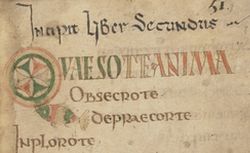 51.
Incipit liber secundus
QUAESOTEANIMA
OBSECROTE
DEPRAECORTE
INPLOROTE